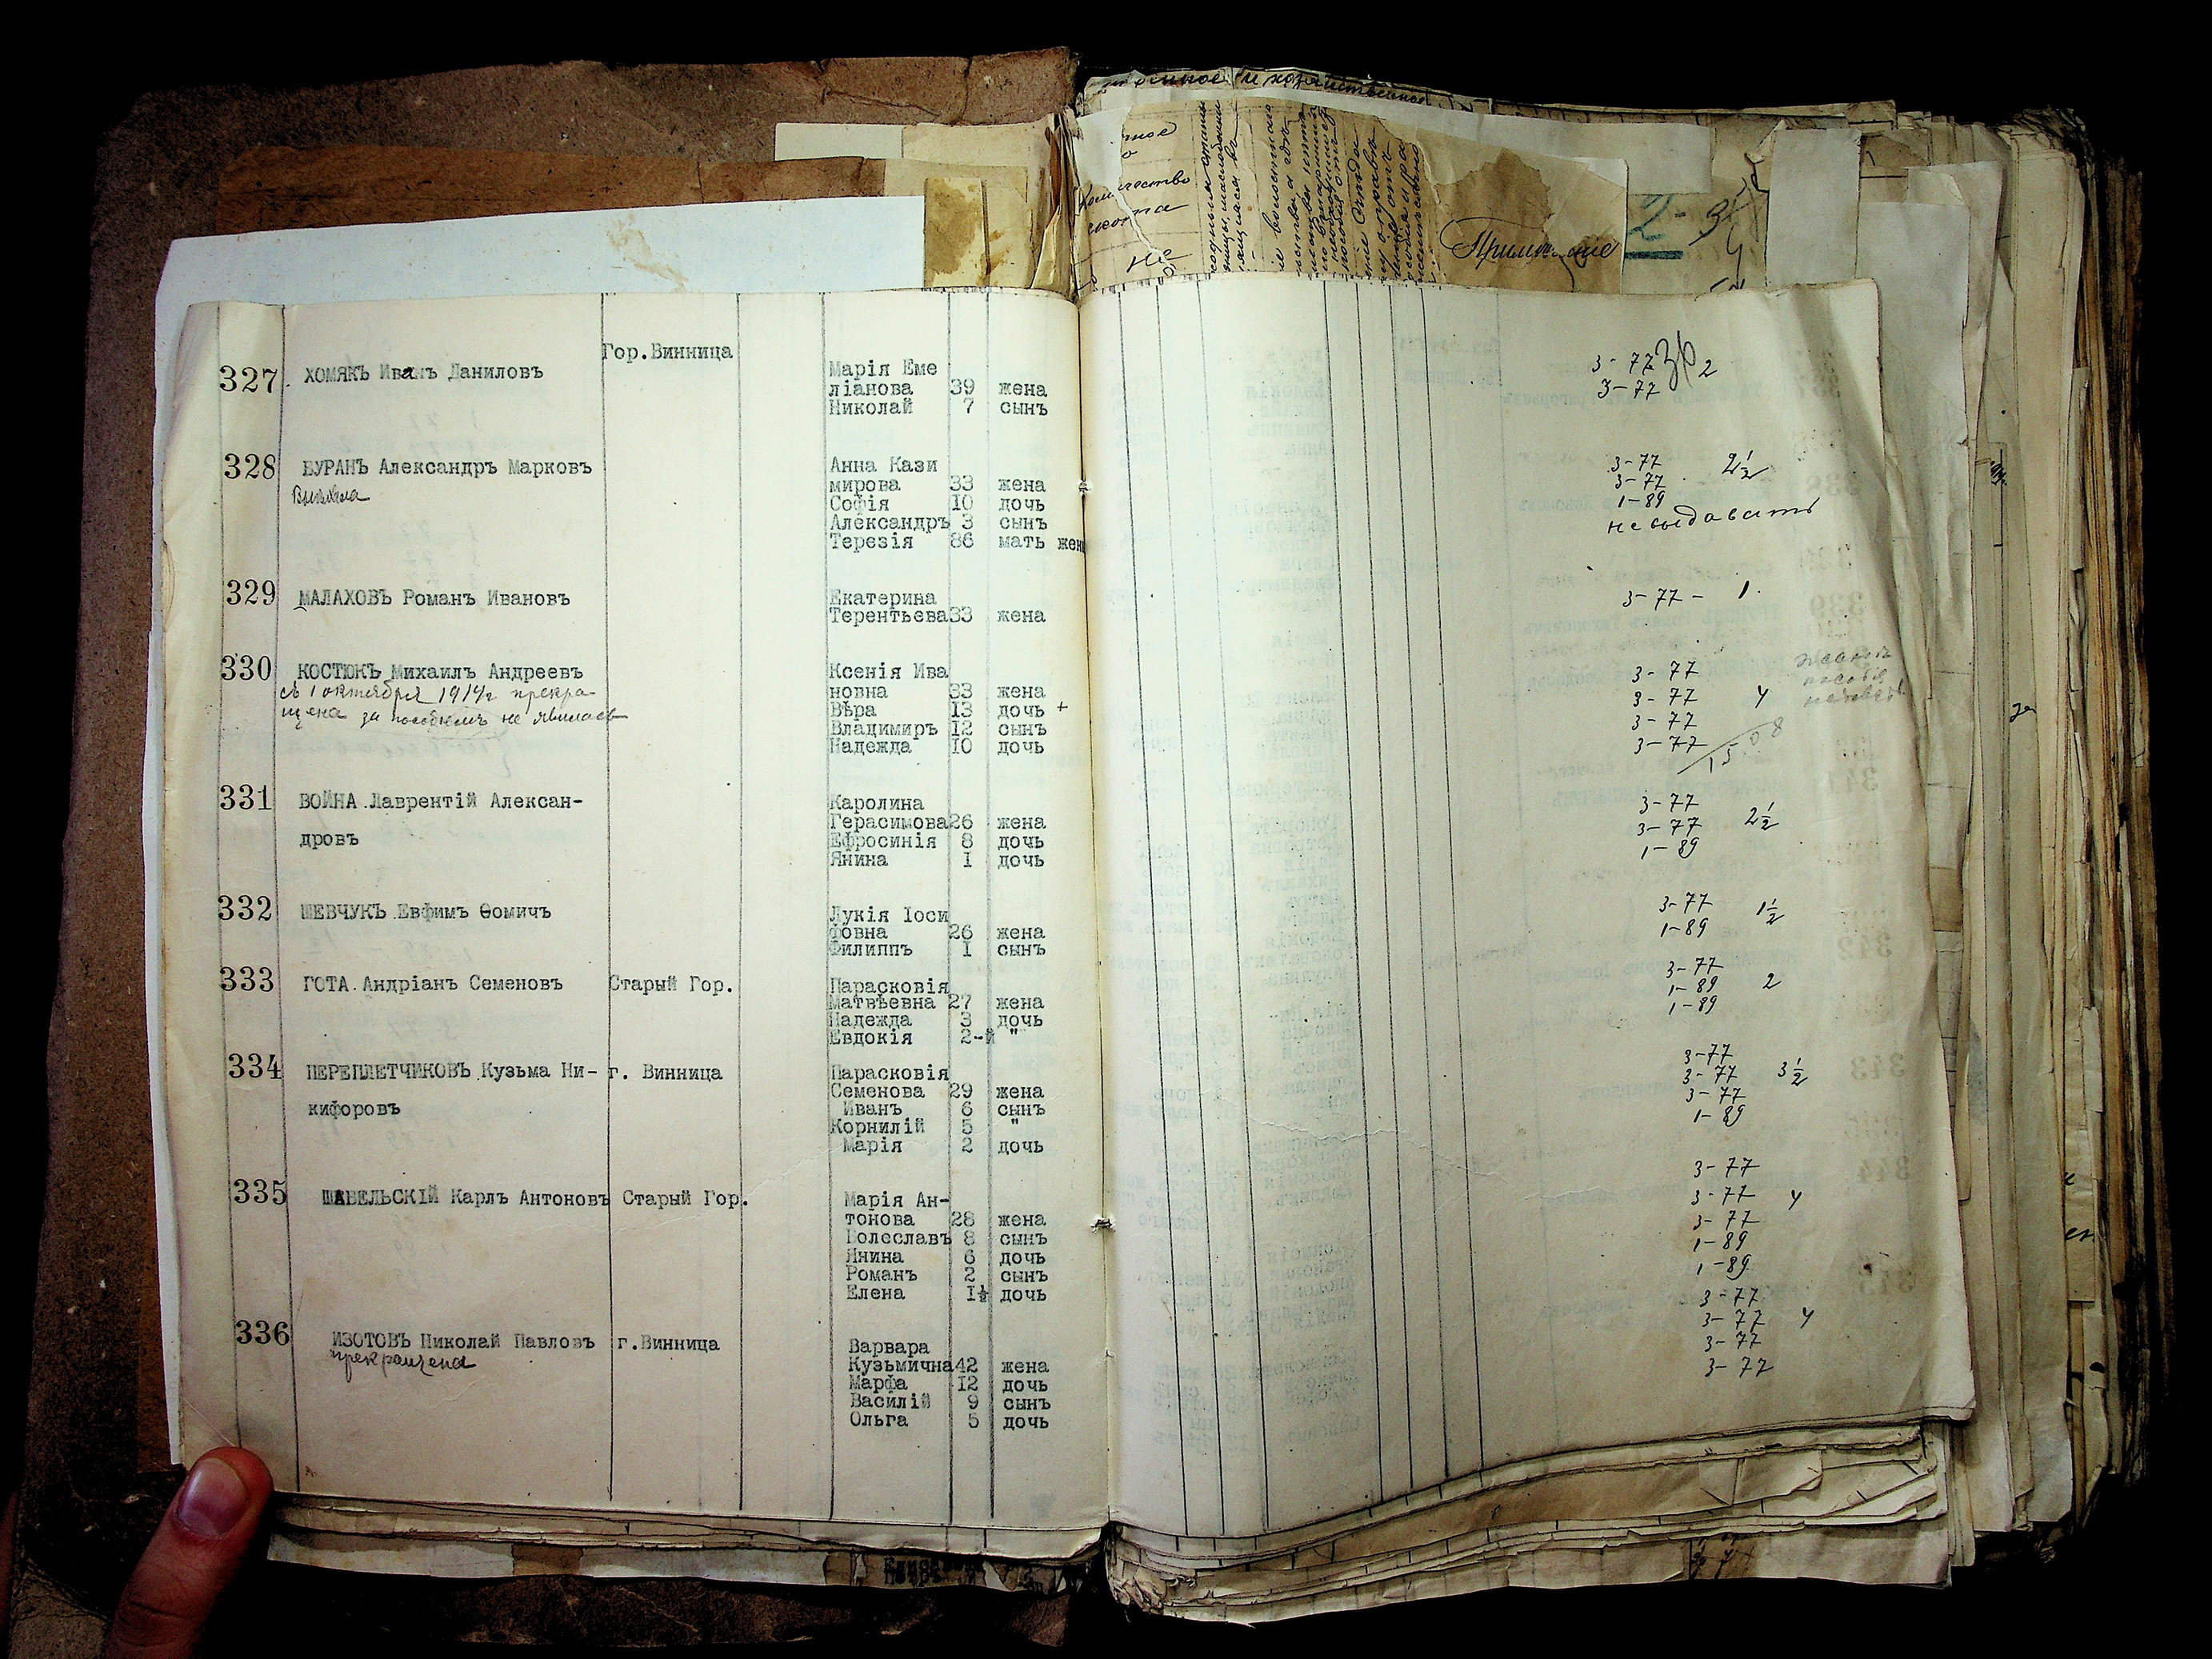 Гор.Винница
327. ХОМЯКЪ Иванъ Даниловъ
Марія Еме
ліанова 39 жена
Николай 7 сынъ
3-77 2
3-77
328 БУРАНЪ Александръ Марковъ
Анна Кази
мирова 33 жена
Софія 10 дочь
Александръ 3 сынъ
Терезія 86 мать жены
3-77 2½
3-77
1-89
не выдавать
329 МАЛАХОВЪ Романъ Ивановъ
Екатерина
Терентьева 33 жена
3-77 - 1.
330 КОСТЮКЪ Михаилъ Андреевъ
съ 1 октября 1914г прекра-
щена за пособіемъ не явилась
Ксенія Ива
новна 33 жена
Вѣра 13 дочь +
Владимиръ 12 сынъ
Надежда 10 дочь
3-77
3-77 4
3-77
3-77
15 08
331 ВОЙНА Лаврентій Алексан-
дровъ
Каролина
Герасимова 26 жена
Ефросинія 8 дочь
Янина 1 дочь
3-77
3-77 2½
1-89
332 ШЕВЧУКЪ Евфимъ Ѳомичъ
Лукія Іоси
фовна 26 жена
Филиппъ 1 сынъ
3-77 1½
1-89
333 ГОТА Андріанъ Семеновъ Старый Гор.
Парасковія
Матвѣевна 27 жена
Надежда 3 дочь
Евдокія 2-й "
3-77
1-89 2
1-89
334 ПЕРЕПЛЕТЧИКОВЪ Кузьма Ни- г. Винница
кифоровъ
Парасковія
Семенова 29 жена
Иванъ 6 сынъ
Корнилій 5 "
Марія 2 дочь
3-77
3-77 3½
3-77
1-89
335 ШАБЕЛЬСКІЙ Карлъ Антоновъ Старый Гор.
Марія Ан-
тонова 28 жена
Болеславъ 8 сынъ
Янина 6 дочь
Романъ 2 сынъ
Елена 1½ дочь
3-77
3-77 4
3-77
1-89
1-89
336 ИЗОТОВЪ Николай Павловъ г.Винница
прекращена
Варвара
Кузьмична 42 жена
Марфа 12 дочь
Василій 9 сынъ
Ольга 5 дочь
3-77
3-77 4
3-77
3-77